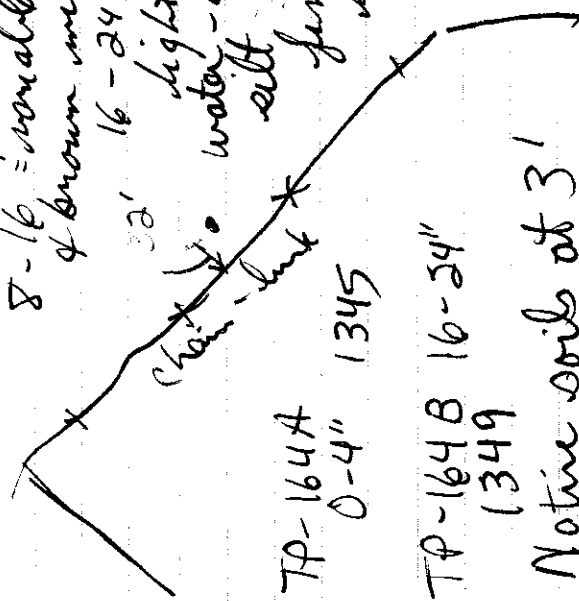 8-16 =
& brown
16-24
light
water-
silt
32'
Chain-link
TP-164A 1345
0-4"
TP-164B 16-24"
1349
Native soils at 3'